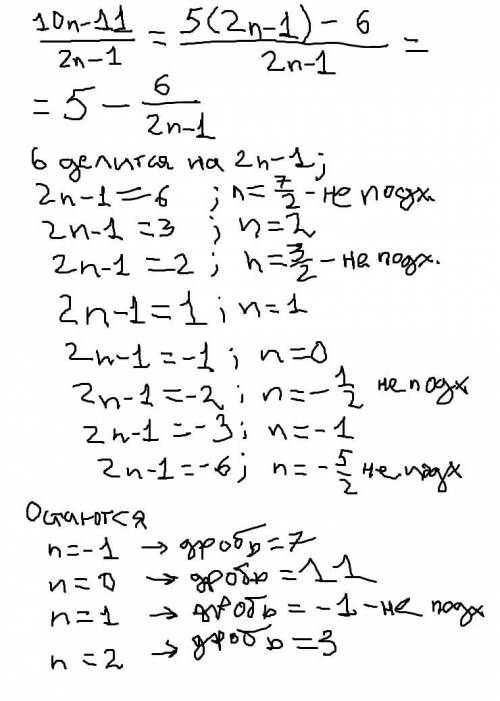 (10n-11)/(2n-1) = (5(2n-1) - 6)/(2n-1) =
= 5 - 6/(2n-1)
6 делится на 2n-1;
2n-1=6 ; n=7/2 - не подх.
2n-1=3 ; n=2
2n-1=2 ; n=3/2 - не подх.
2n-1=1; n=1
2n-1=-1; n=0
2n-1=-2; n=-1/2 не подх
2n-1=-3; n=-1
2n-1=-6; n=-5/2 не подх
Остаются
n=-1 → дробь=7
n=0 → дробь=11
n=1 → дробь=-1-не подх
n=2 → дробь=3